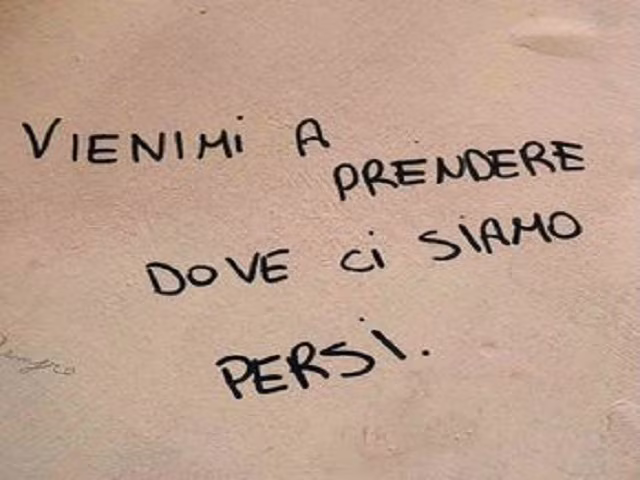 VIENIMI A
PRENDERE
DOVE Ci SiAMO
PERSi.